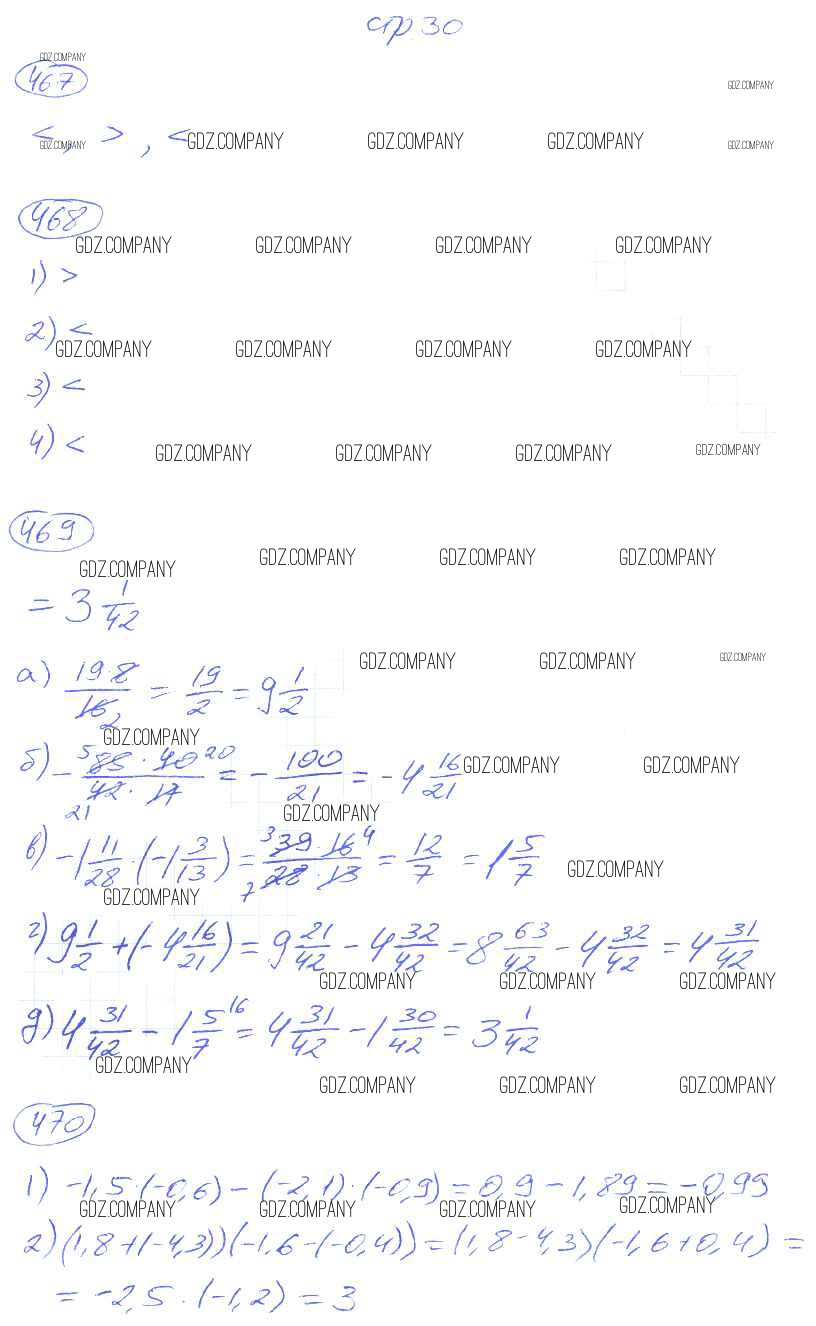 стр 30
GDZ.COMPANY
467
GDZ.COMPANY
<, >, <
GDZ.COMPANY GDZ.COMPANY GDZ.COMPANY GDZ.COMPANY GDZ.COMPANY
468
GDZ.COMPANY GDZ.COMPANY GDZ.COMPANY GDZ.COMPANY
1) >
2) <
GDZ.COMPANY GDZ.COMPANY GDZ.COMPANY GDZ.COMPANY
3) <
4) <
GDZ.COMPANY GDZ.COMPANY GDZ.COMPANY GDZ.COMPANY
469
GDZ.COMPANY GDZ.COMPANY GDZ.COMPANY GDZ.COMPANY
= 3 1/42
GDZ.COMPANY GDZ.COMPANY GDZ.COMPANY
а) 19·8/16 2 = 19/2 = 9 1/2
GDZ.COMPANY
б) - 5 85·40 20/21 42·17 = - 100/21 = -4 16/21
GDZ.COMPANY GDZ.COMPANY GDZ.COMPANY
в) -1 11/28 · (-1 3/13) = 3 39·16 4/7 28·13 = 12/7 = 1 5/7
GDZ.COMPANY GDZ.COMPANY
г) 9 1/2 + (-4 16/21) = 9 21/42 - 4 32/42 = 8 63/42 - 4 32/42 = 4 31/42
GDZ.COMPANY GDZ.COMPANY GDZ.COMPANY
д) 4 31/42 - 1 5/7 16 = 4 31/42 - 1 30/42 = 3 1/42
GDZ.COMPANY GDZ.COMPANY GDZ.COMPANY GDZ.COMPANY
470
1) -1,5·(-0,6) - (-2,1)·(-0,9) = 0,9 - 1,89 = -0,99
GDZ.COMPANY GDZ.COMPANY GDZ.COMPANY GDZ.COMPANY
2) (1,8+(-4,3))(-1,6-(-0,4)) = (1,8-4,3)(-1,6+0,4) =
= -2,5·(-1,2) = 3